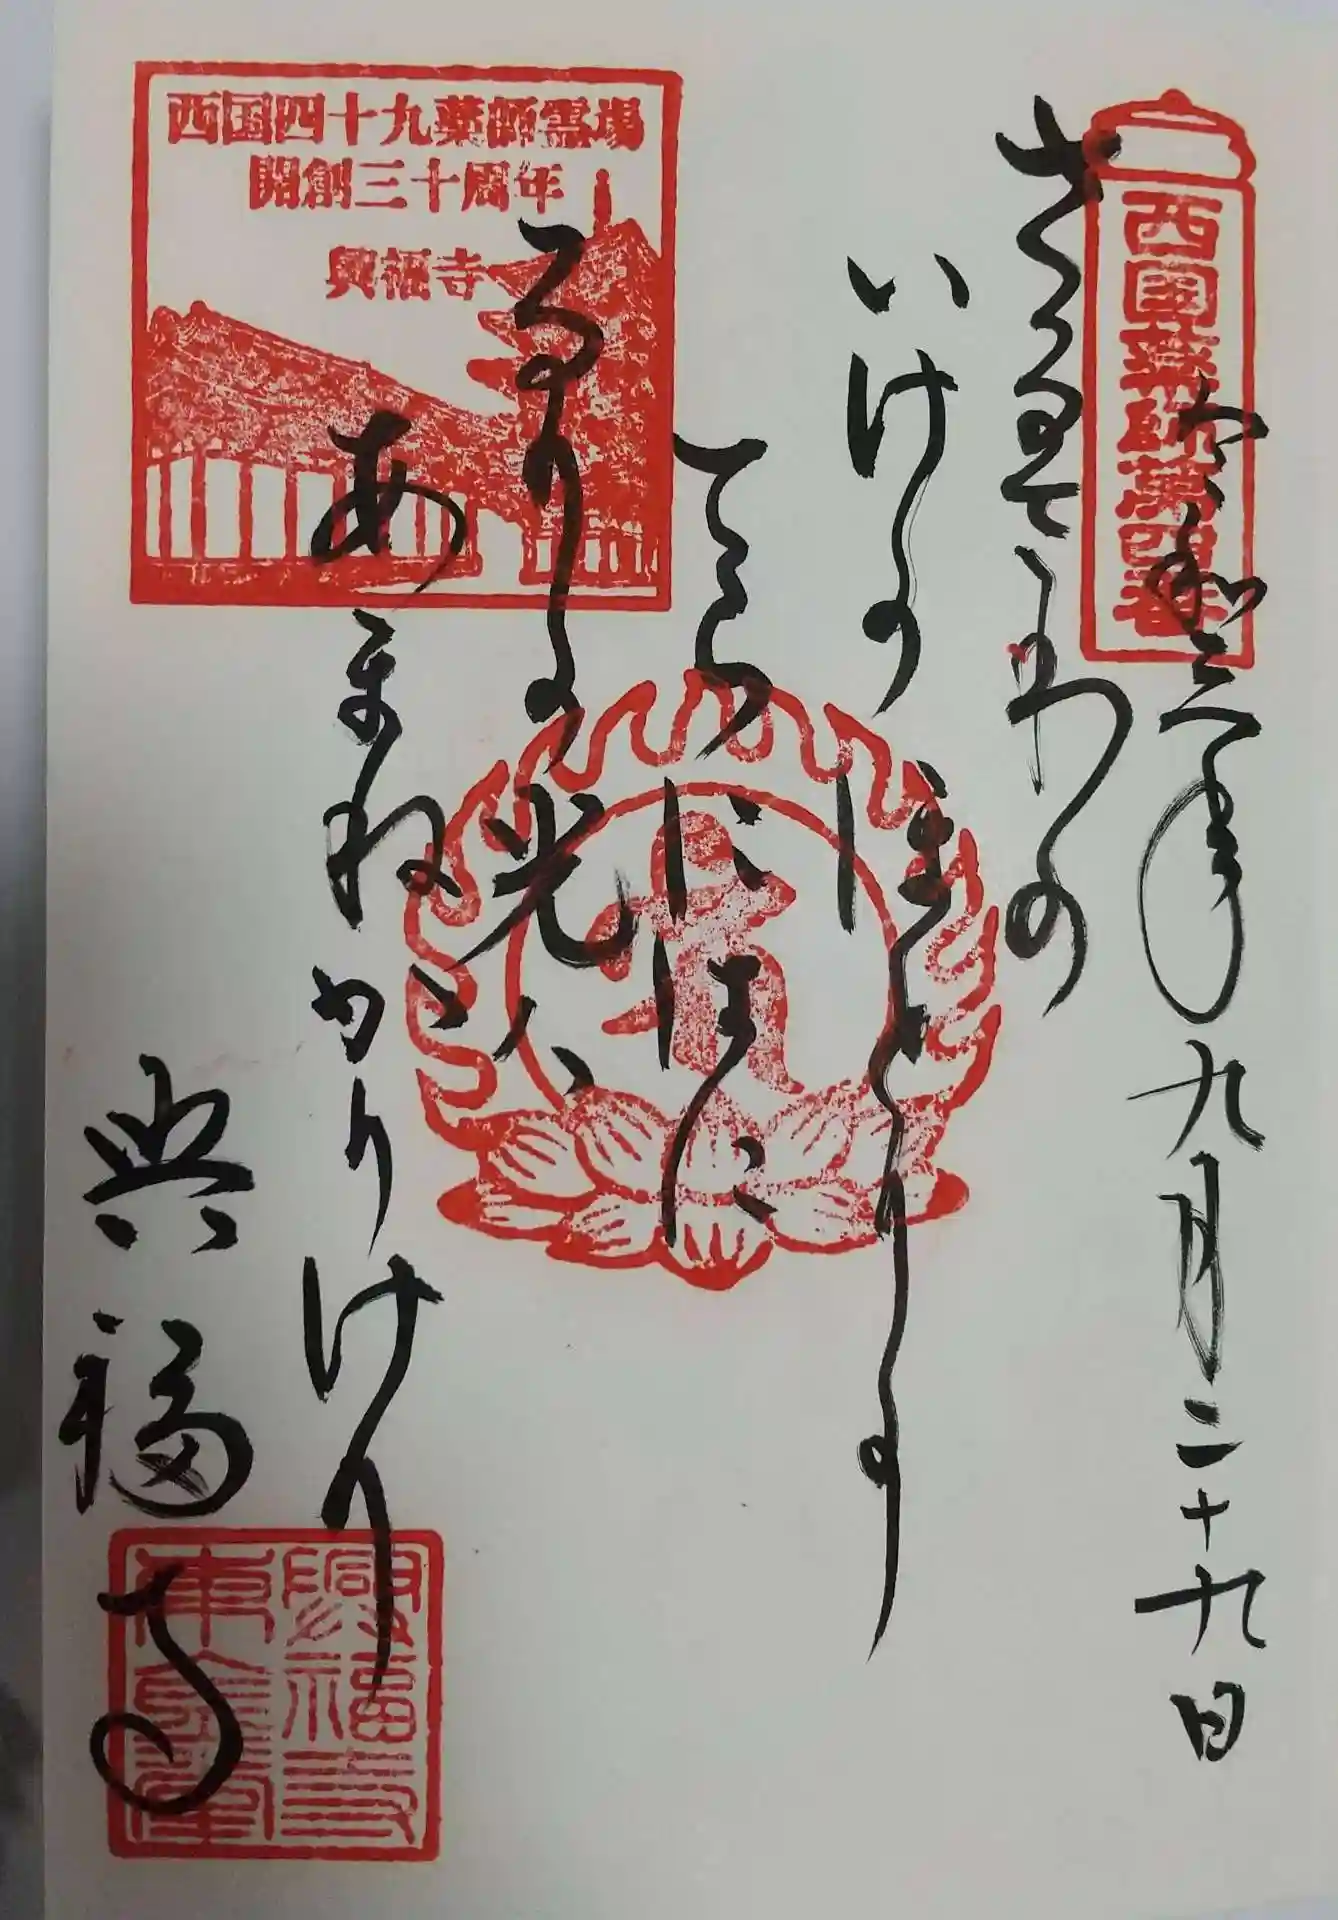 西国四十九薬師霊場
開創三十周年
興福寺
西国薬師第四番
令和三年九月二十九日
さるさわの
いけのほとりの
てらにはに
るりの光は
あまねかりけり
興福寺
興福寺
東金堂